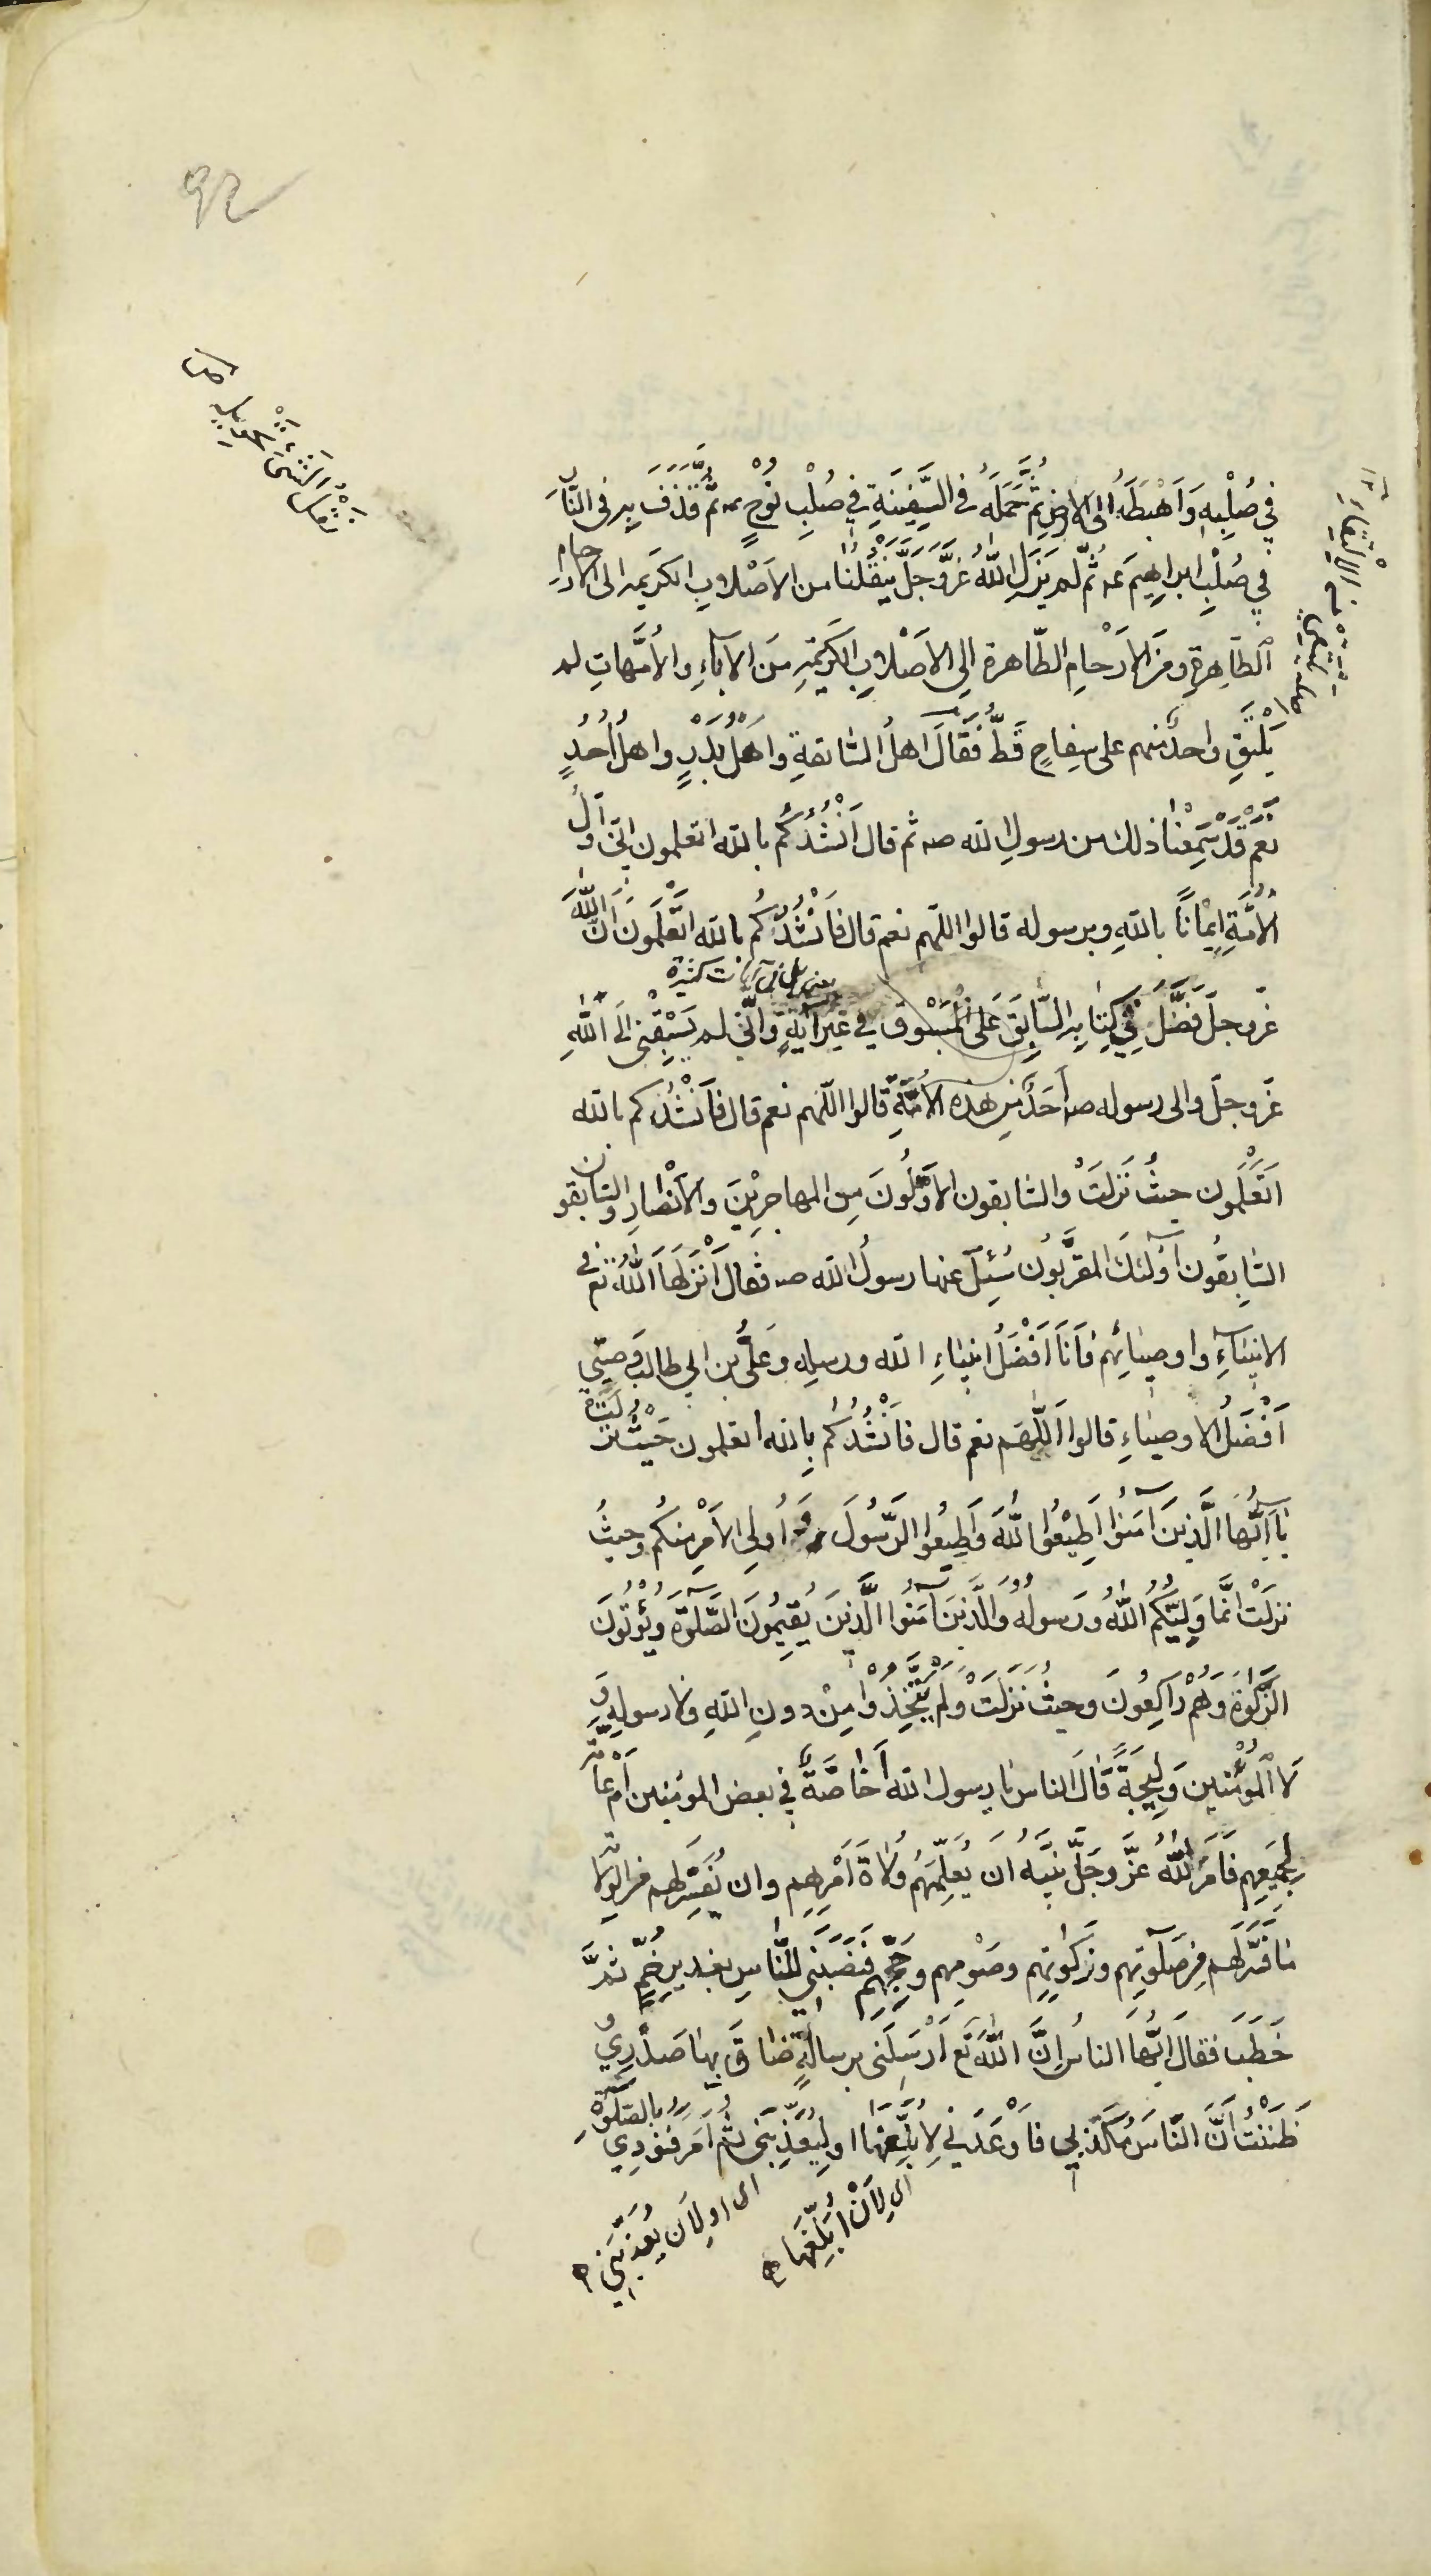 92
في صُلْبِهِ وَاَهْبَطَهُ الى الارضِ ثُمَّ حَمَلَهُ في السَّفِينَةِ في صُلْبِ نُوْحٍ عـ ثُمَّ قَذَفَ بِهِ في النَّارِ
في صُلْبِ ابراهِيمَ عـ ثُمَّ لم يَزَلِ اللّهُ عَزَّ وَجَلَّ يَنْقُلُنَا من الاَصْلابِ الكَرِيمه الى الارحامِ
الطَّاهِرةِ ومِنَ الاَرْحامِ الطّاهرة الى الاَصْلابِ الكَرِيْمَةِ مِنَ الآباءِ والاُمَّهاتِ لم
يَلْتَقِ واحدٌ منهم على سِفاحٍ قَطُّ فَقَالَ اهلُ السَّابقةِ وَاَهْلُ بَدْرٍ واهلُ اُحُدٍ
نَعَمْ قَدْ سَمِعْنَا ذلك من رسولِ الله صـ ثم قال اَنْشُدُكُم بالله اتعلمون انّى اَوَّلُ
الاُمَّةِ اِيْمَانًا باللهِ وبرسوله قالوا اللّهم نعم قال فَاَنْشُدُكُم بالله اَتَعْلَمُونَ اَنَّ اللّهَ
يعنى بل في آيات كثيرة
عَزّ وجلّ فَضَّلَ فِي كِتابِهِ السَّابِقَ عَلَى الْمَسْبُوقِ في غَيْرِ آيَةٍ وَانّى لم يَسْبِقْنى الَى اللّهِ
عَزّ وجلّ والى رسوله صـ اَحَدٌ مِن هذه الاُمَّةِ قالوا اللّهم نعم قال فَاَنْشُدُكم بالله
اَتَعْلَمُون حيثُ نَزَلَتْ والسّابقون الاَوَّلُونَ مِن المهاجِرِيْنَ والاَنْصَارِ والسّابقون
السَّابِقُون اُولئكَ المقَرَّبُون سُئِلَ عنها رسولُ الله صـ فقالَ اَنْزَلَهَا اللّهُ تعـ في
الانبياءِ واوصِيائِهِم فَاَنَا اَفْضَلُ انبياءِ الله ورسلِه وعَلىُّ بن ابي طالب وَصِيّي
اَفْضَلُ الاوصِياءِ قالوا اَللّهُمّ نعم قال فَاَنْشُدُكُم بِالله اتعلمون حَيْثُ نَزَلَتْ
يَا اَيُّهَا الَّذِينَ آمَنُوا اَطِيْعُوا اللّهَ وَاَطِيعُوا الرَّسُولَ وَ اُولِى الاَمْرِ مِنكُم وحيثُ
نَزَلَتْ اِنَّمَا وَلِيُّكُمُ اللّهُ ورَسُولُهُ وَالَّذِينَ آمَنُوا الَّذِينَ يُقِيْمُونَ الصَّلوةَ ويُؤْتُونَ
الزَّكَوةَ وَهُمْ رَاكِعُونَ وحيثُ نَزَلَتْ وَلَمْ يَتَّخِذُوْا مِنْ دونِ اللهِ ولا رسولِهِ وَ
لا الْمُؤْمنين وَلِيْجَةً قَالَ الناس يا رسول الله اَخَاصَّةٌ في بعض المؤمنين اَمْ عَامَّةٌ
لِجَمِيْعِهِم فَاَمَرَ اللّهُ عَزَّ وجَلَّ نَبِيَّهُ اَنْ يُعَلِّمَهُم وُلاةَ اَمْرِهِم وان يُفَسِّرَ لهم من الولايةِ
مَا فَسَّرَ لَهم مِن صَلَوتِهِم وزَكَوتِهِم وصَوْمِهم وحَجِّهِم فَنَصَبَنِى لِلنَّاسِ بغديرِ خُمٍّ ثمَّ
خَطَبَ فقالَ اَيُّهَا الناسُ اِنَّ اللّهَ تعـ اَرْسَلَنى بِرِسَالَةٍ ضَاقَ بِهَا صَدْرِي وَ
ظَنَنْتُ اَنَّ النّاسَ مُكَذِّبِي فَاَوْعَدَنِي لِاُبَلِّغَهَا اولِيُعَذِّبَنى ثُمَّ اَمَرَ فنودِي بالصّلوةِ
اى لِاَنْ اُبَلِّغَهَا
اى او لِاَن يُعَذِّبَنِي